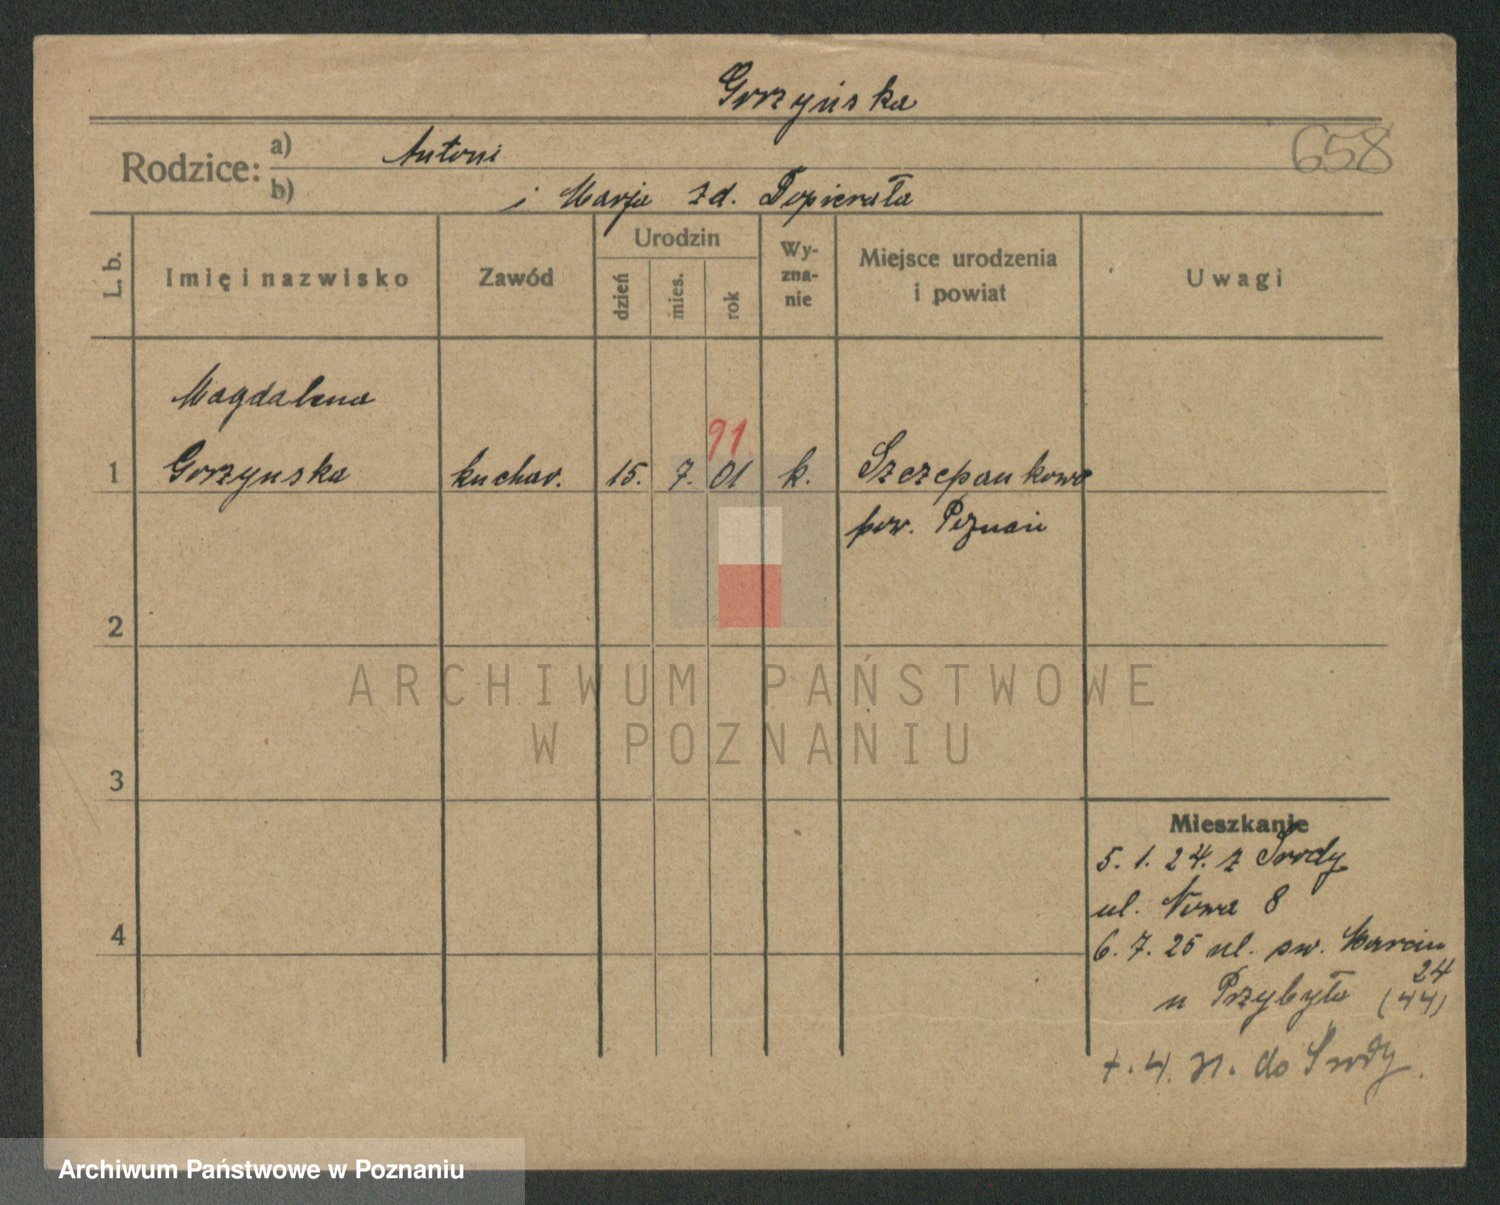 Gorzyńska
658
Rodzice: a) Antoni
b) i Marja zd. Popierała
L. b.
Imię i nazwisko
Zawód
Urodzin
dzień
mies.
rok
Wy-
zna-
nie
Miejsce urodzenia
i powiat
Uwagi
Magdalena
91
1 Gorzynska kuchar. 15. 7. 01 k. Szczepankowo
pow. Poznań
2
ARCHIWUM PAŃSTWOWE
W POZNANIU
3
Mieszkanie
5. 1. 24. z Środy
ul. Nowa 8
4
6. 7. 25 ul. św. Marcin
24
u Przybyła (44)
do Środy.
Archiwum Państwowe w Poznaniu